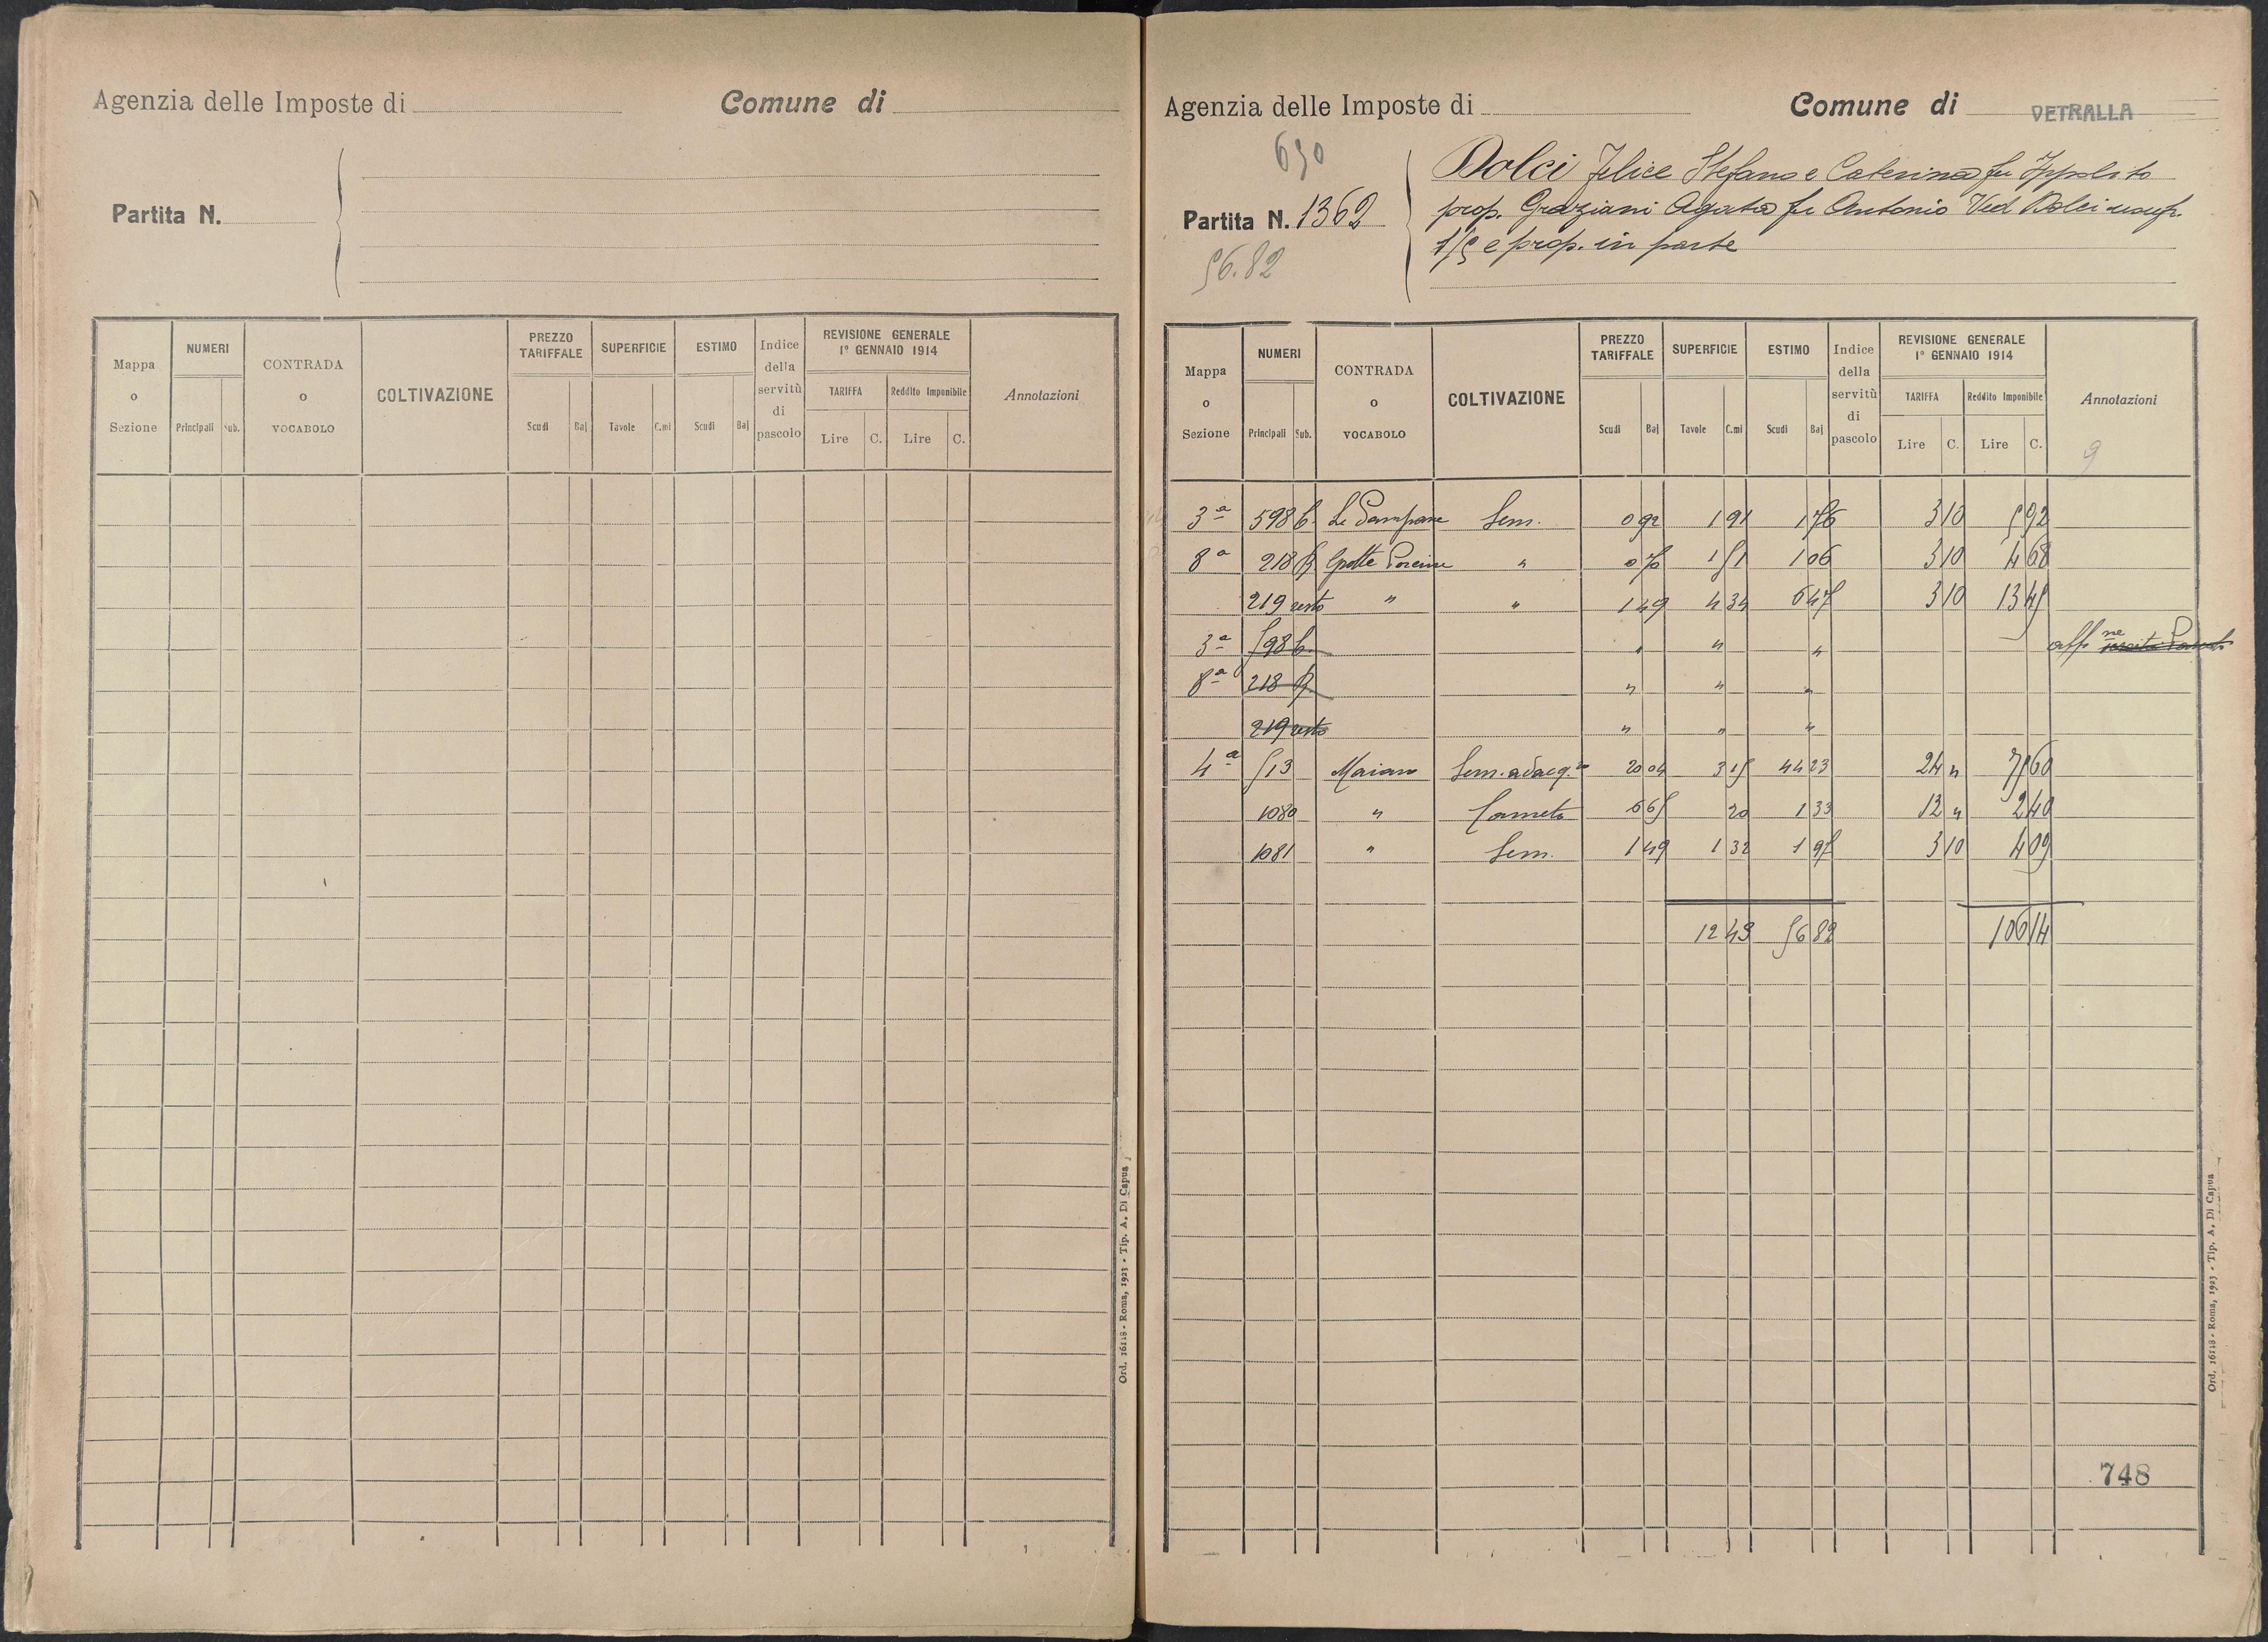 Agenzia delle Imposte di
Comune di
Partita N.
Mappa o Sezione
NUMERI
Principali
Sub.
CONTRADA o VOCABOLO
COLTIVAZIONE
PREZZO TARIFFALE
Scudi
Baj
SUPERFICIE
Tavole
C.mi
ESTIMO
Scudi
Baj
Indice della servitù di pascolo
REVISIONE GENERALE
1° GENNAIO 1914
TARIFFA
Lire
C.
Reddito Imponibile
Lire
C.
Annotazioni
Ord. 16118 - Roma, 1923 - Tip. A. Di Capua
Agenzia delle Imposte di
Comune di VETRALLA
630
Partita N. 1362
56.82
Dolci Felice Stefano e Caterina fu Ippolito
prop. Graziani Agata fu Antonio Ved Dolci usuf.
1/5 e prop. in parte
Mappa o Sezione
NUMERI
Principali
Sub.
CONTRADA o VOCABOLO
COLTIVAZIONE
PREZZO TARIFFALE
Scudi
Baj
SUPERFICIE
Tavole
C.mi
ESTIMO
Scudi
Baj
Indice della servitù di pascolo
REVISIONE GENERALE
1° GENNAIO 1914
TARIFFA
Lire
C.
Reddito Imponibile
Lire
C.
Annotazioni
9
3ª 598 b. Le Sem. 0 92 1 91 1 76 3 10 5 92
8ª 218 Grotte Porcine " 0 70 1 51 1 06 3 10 4 68
219 resto " " 1 49 4 34 6 47 3 10 13 45
3ª 598 b. " " " aff ne
8ª 218 " " "
219 resto " " "
4ª 513 Maiano Sem. adacq. 20 04 3 15 44 23 24 " 75 60
1080 " Canneto 6 65 20 1 33 12 " 2 40
1081 " Sem. 1 49 1 32 1 97 3 10 4 09
12 43 56 82 106 14
748
Ord. 16118 - Roma, 1923 - Tip. A. Di Capua